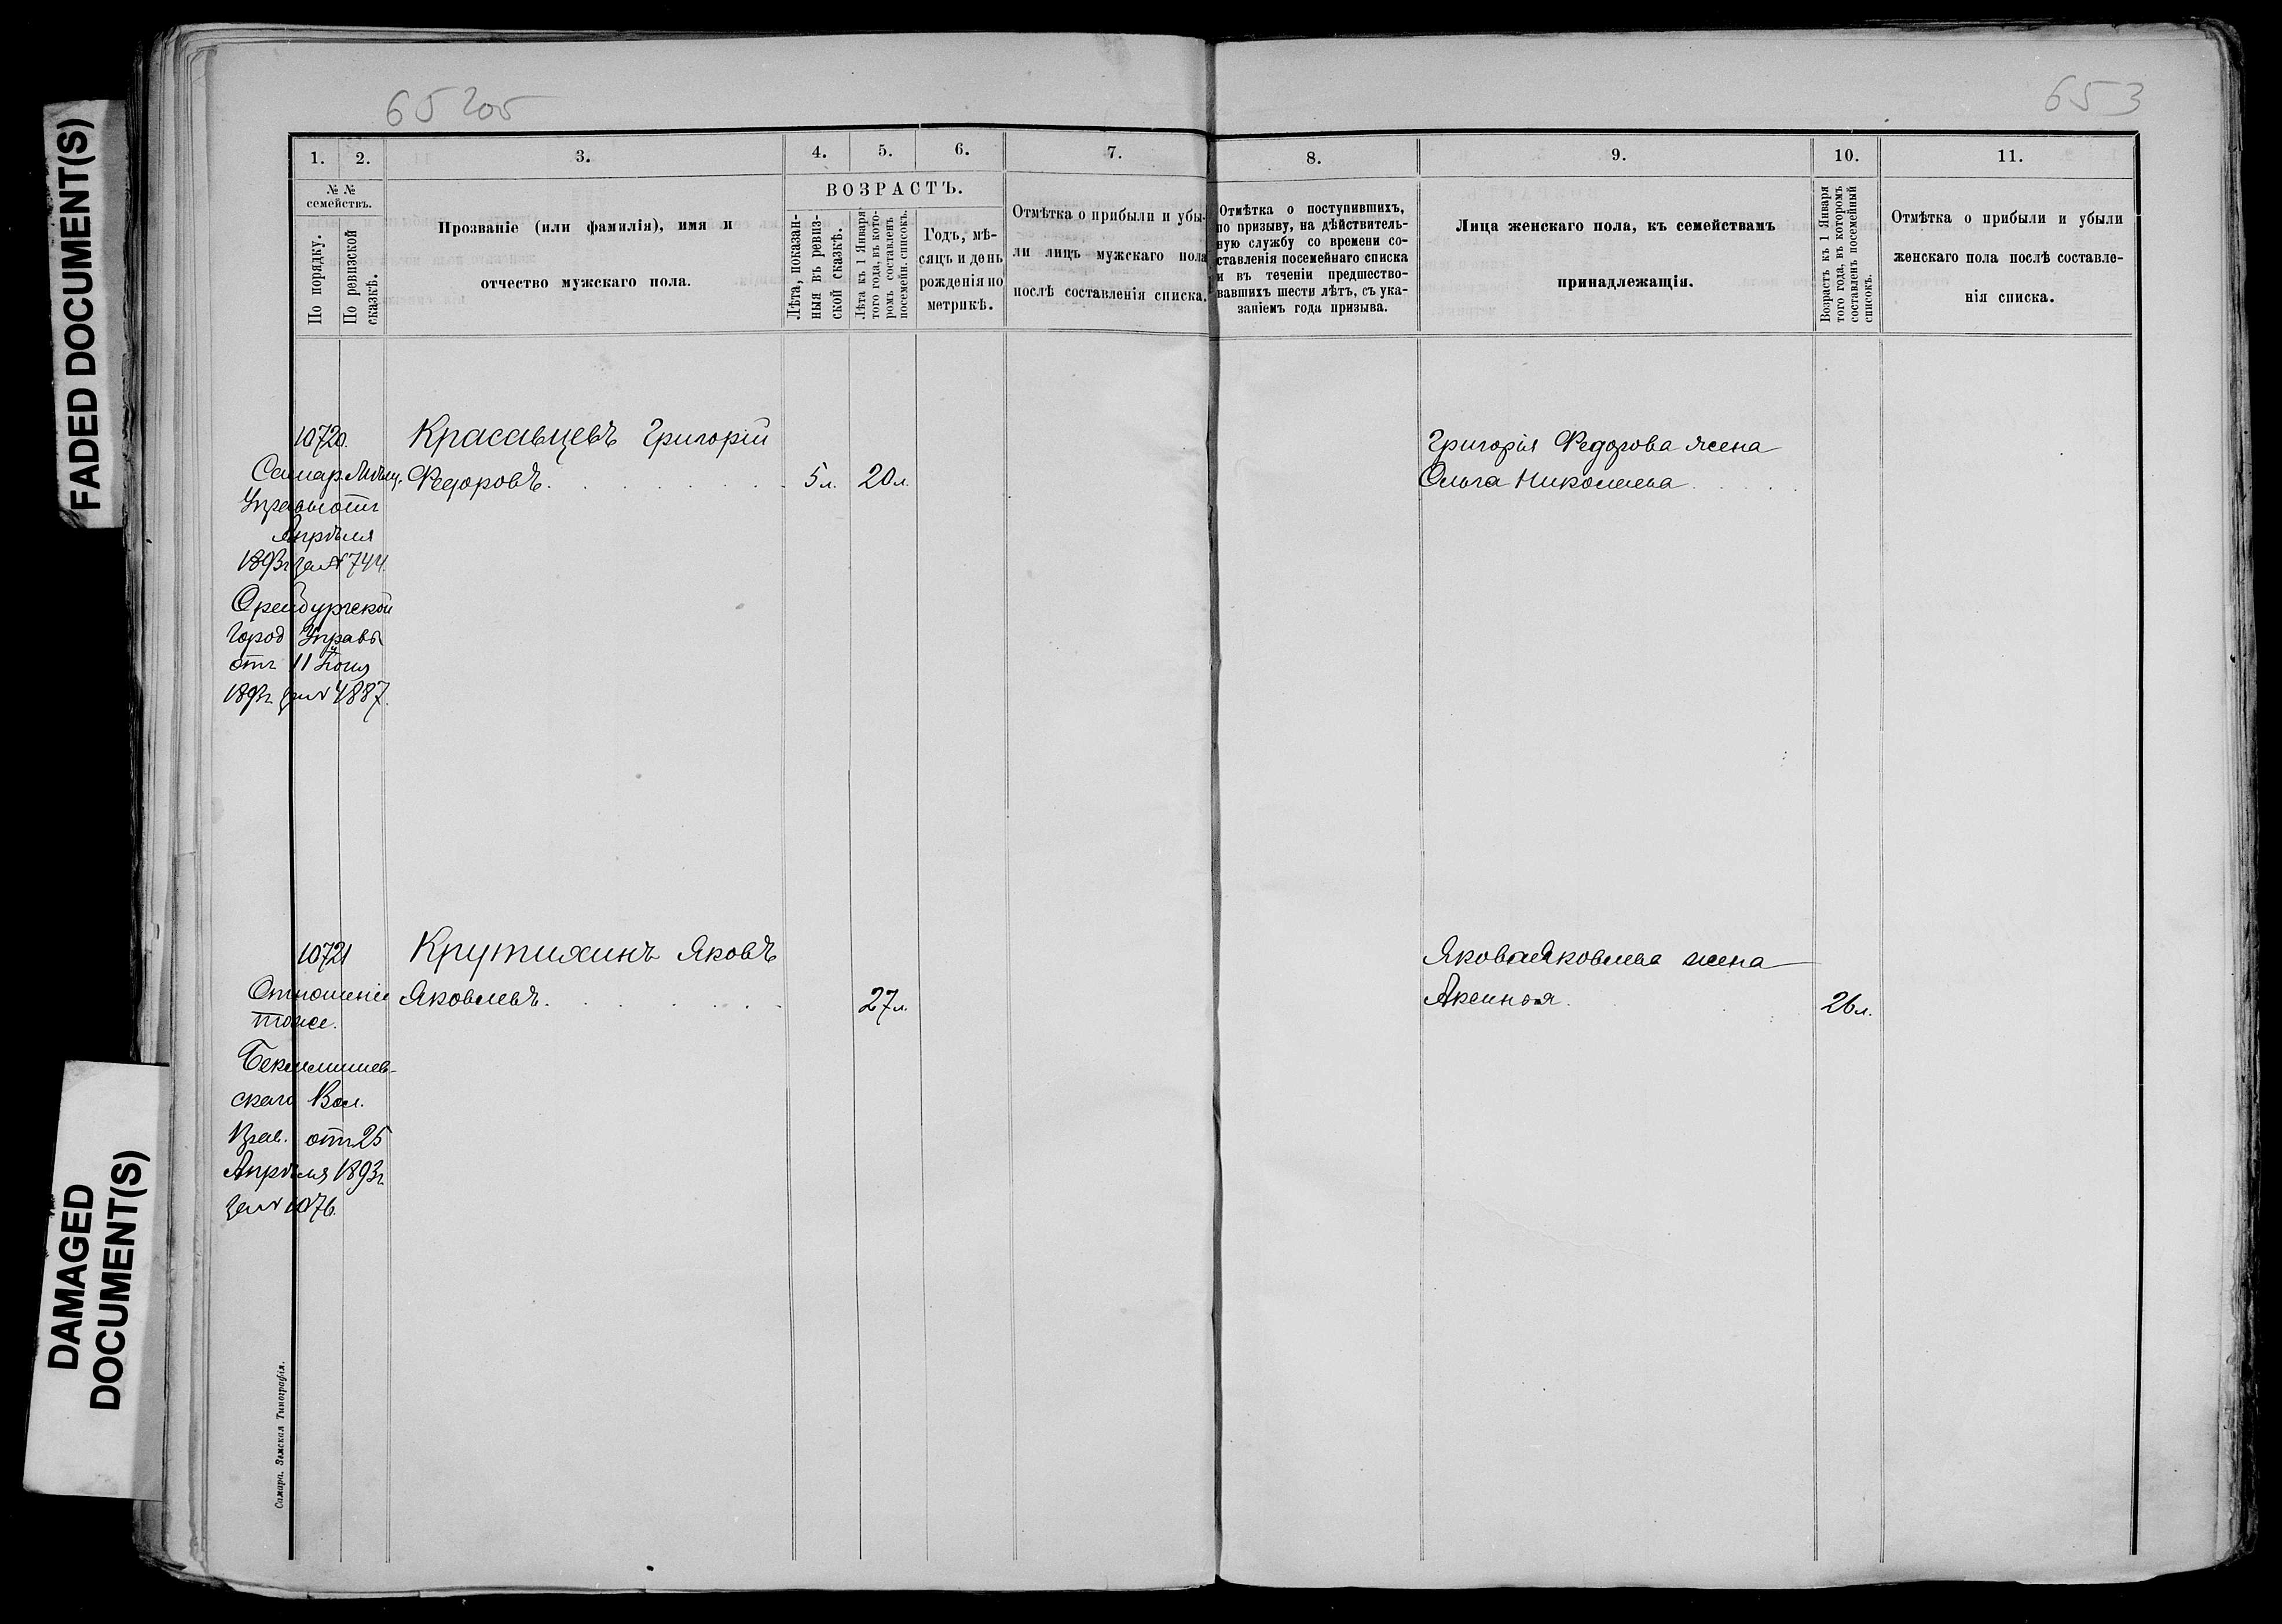 FADED DOCUMENT(S)
DAMAGED
DOCUMENT(S)
653
1.
2.
3.
4.
5.
6.
7.
8.
9.
10.
11.
№ №
семействъ.
По порядку.
По ревизской
сказкѣ.
Прозваніе (или фамилія), имя и
отчество мужскаго пола.
ВОЗРАСТЪ.
Лѣта, показан-
ныя въ ревиз-
ской сказкѣ.
Лѣта къ 1 Января
того года, въ кото-
ромъ составленъ
посемейн. списокъ.
Годъ, мѣ-
сяцъ и день
рожденія по
метрикѣ.
Отмѣтка о прибыли и убы-
ли лицъ мужскаго пола
послѣ составленія списка.
Отмѣтка о поступившихъ,
по призыву, на дѣйствитель-
ную службу со времени со-
ставленія посемейнаго списка
и въ теченіи предшество-
вавшихъ шести лѣтъ, съ ука-
заніемъ года призыва.
Лица женскаго пола, къ семействамъ
принадлежащія.
Возрастъ къ 1 Января
того года, въ которомъ
составленъ посемейный
списокъ.
Отмѣтка о прибыли и убыли
женскаго пола послѣ составле-
нія списка.
10720.
Красавцевъ Григорій
Федоровъ. 5 л. 20 л.
Григорія Федорова жена
Ольга Николаева
Самар. Мѣщ.
Управы отъ
Апрѣля
1893г за № 744.
Оренбургской
Город Управы
отъ 11 Іюня
1893г. за № 4887.
10721
Крутихинъ Яковъ
Яковлевъ. 27 л.
Якова Яковлева жена
Аксинья. 26 л.
Отношеніе
тоже.
скаго Вол.
Прав. отъ 25
Апрѣля 1893г.
за № 1076.
Самара. Земская Типографія.